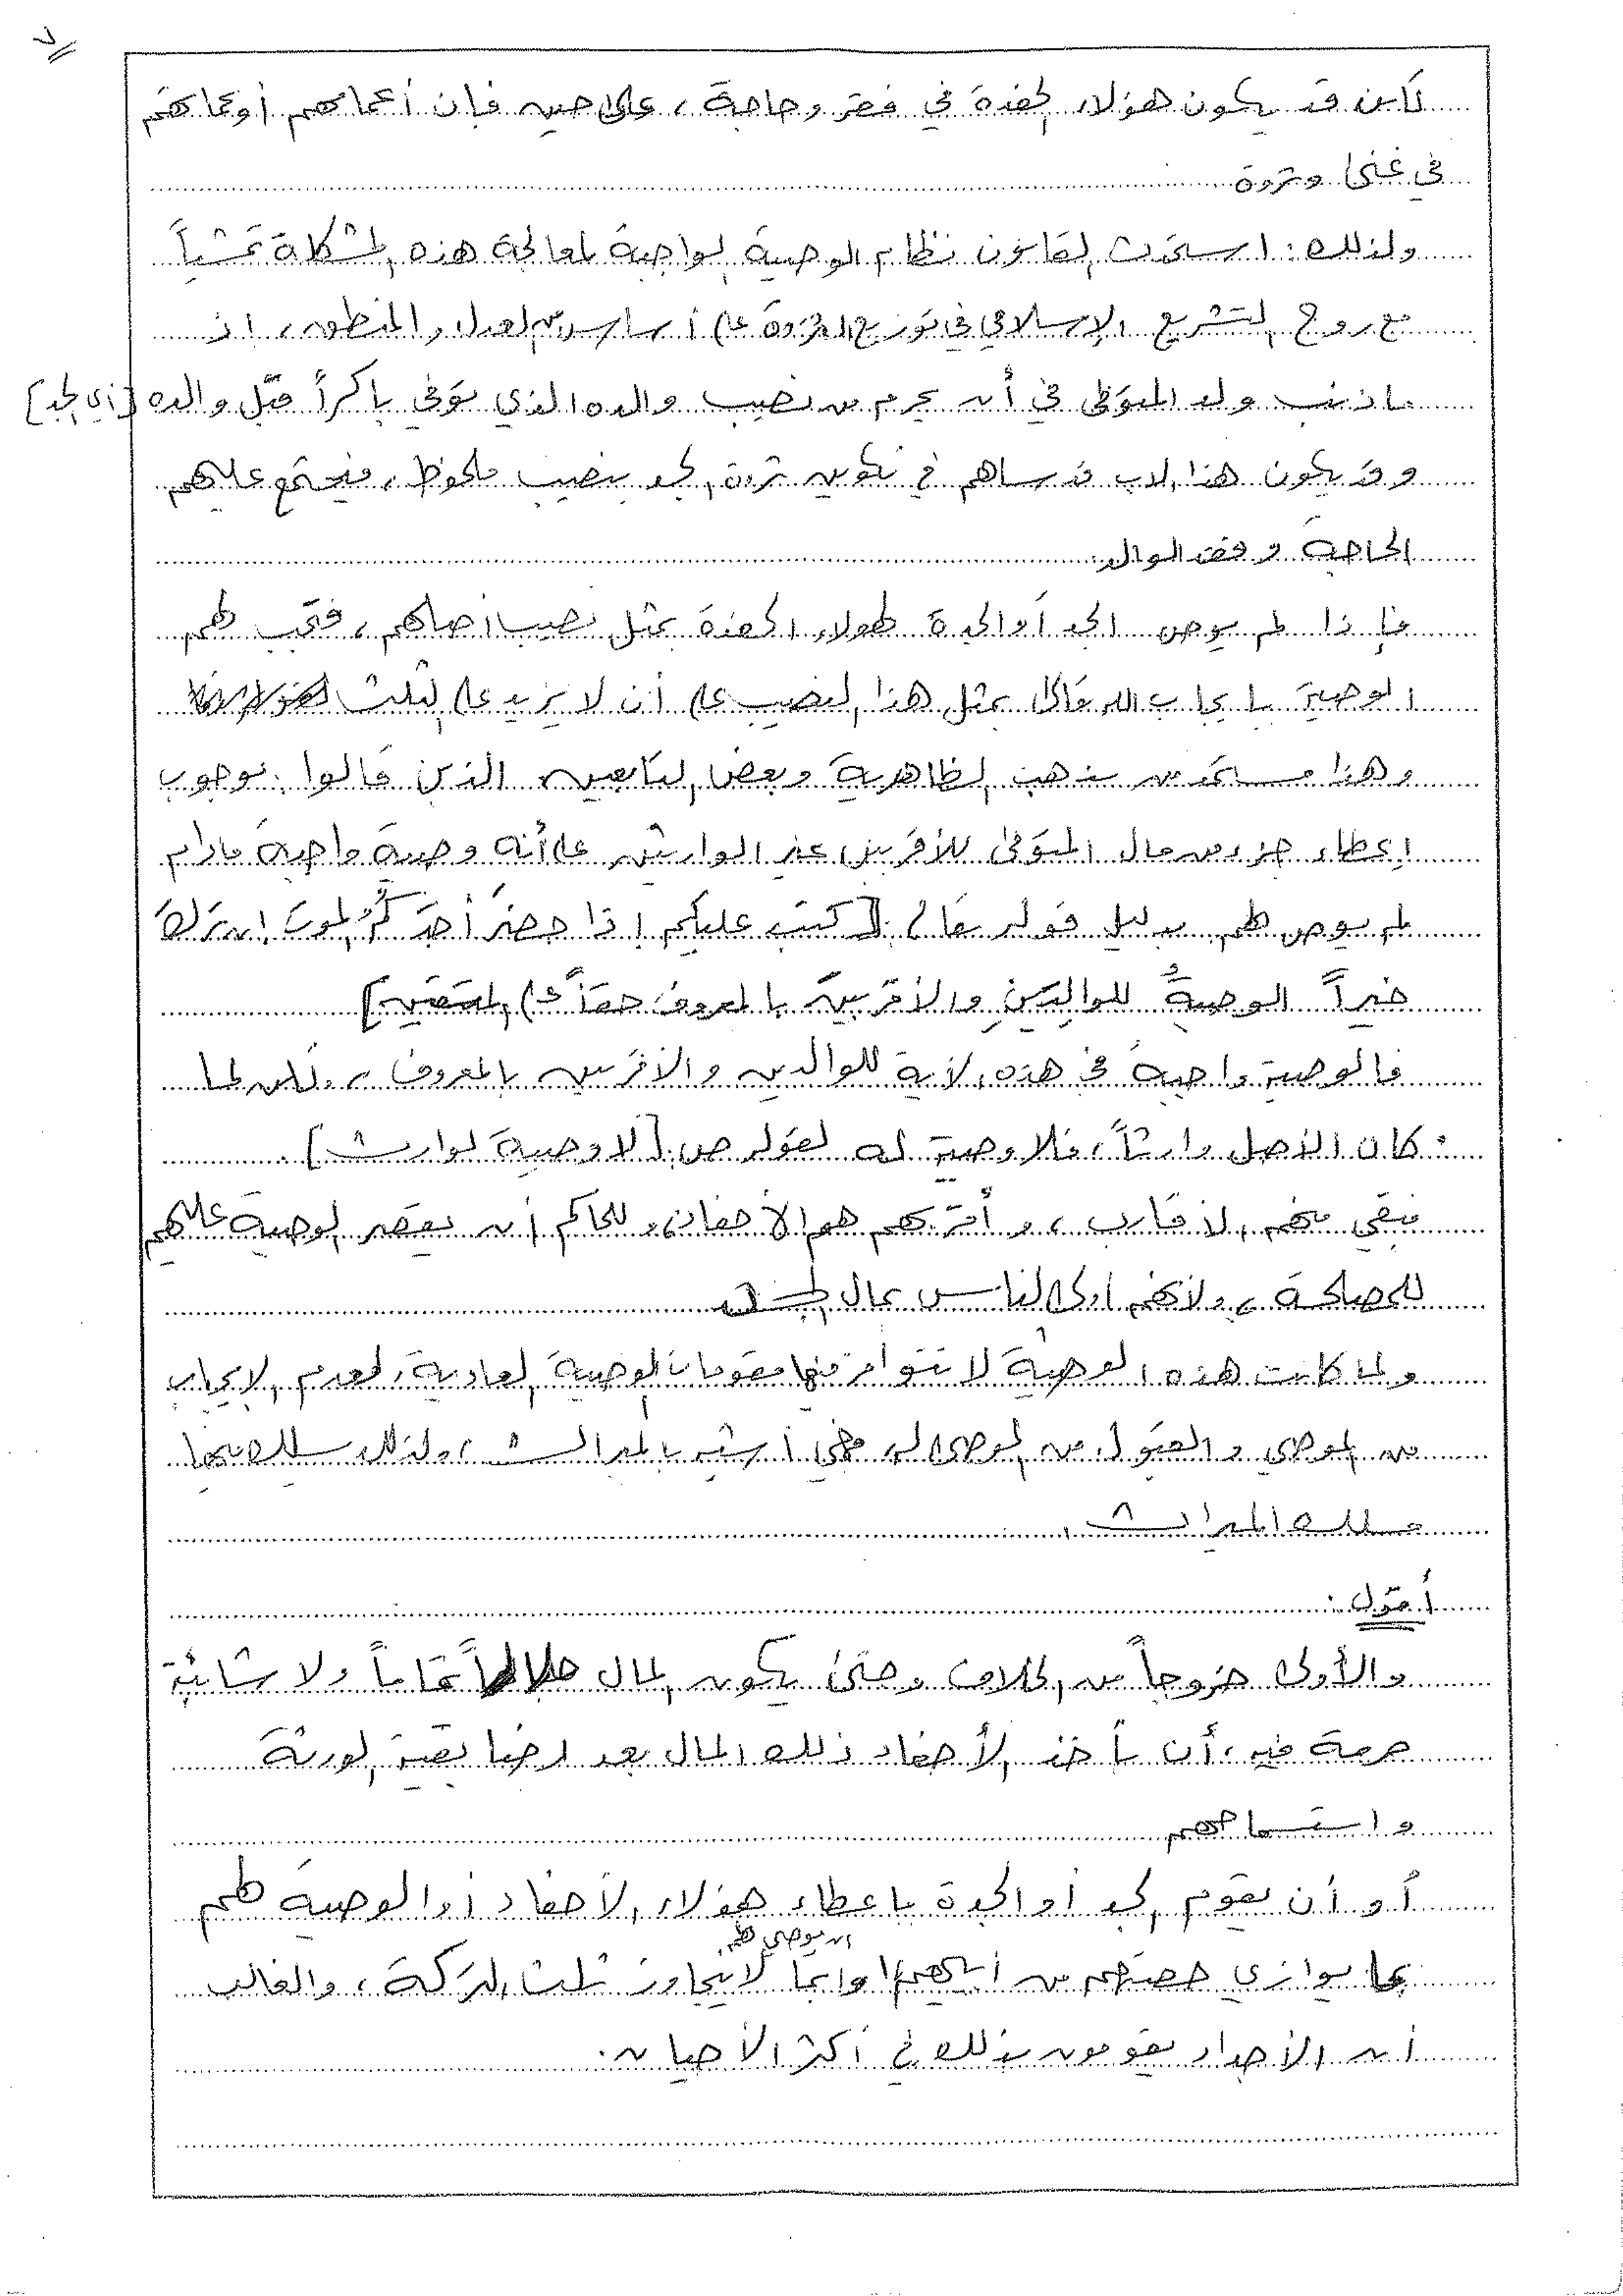 لكن قد يكون هؤلاء الحفدة في فقر وحاجة، على حين فإن أعمامهم أو عماتهم
في غنى وثروة
ولذلك: استحدث القانون نظام الوصية الواجبة لمعالجة هذه المشكلة تمشياً
مع روح التشريع الإسلامي في توزيع الثروة على أساس من العدل والمنطق، إذ
ما ذنب ولد المتوفى في أن يحرم من نصيب والده الذي توفي باكراً قبل والده [أي الجد]
وقد يكون هذا الأب قد ساهم في تكوين ثروة الجد بنصيب ملحوظ، فيجتمع عليهم
الحاجة وفقد الوالد.
فإذا لم يوص الجد أو الجدة لهؤلاء الحفدة بمثل نصيب أصلهم، فتجب لهم
الوصية بإيجاب الله تعالى بمثل هذا النصيب على أن لا يزيد على الثلث
وهذا مستمد من مذهب الظاهرية وبعض التابعين الذين قالوا بوجوب
إعطاء جزء من مال المتوفى للأقربين غير الوارثين على أنه وصية واجبة مادام
لم يوص لهم بدليل قوله تعالى [كتب عليكم إذا حضر أحدكم الموت إن ترك
خيراً الوصيةُ للوالدين والأقربين بالمعروف حقاً على المتقين]
فالوصية واجبة في هذه الآية للوالدين والأقربين بالمعروف، ولكن لما
كان الأصل وارثاً، فلا وصية له لقوله ص [لا وصية لوارث].
فبقي منهم الأقارب، وأقربهم هم الأحفاد، وللحاكم أن يقصر الوصية عليهم
للمصلحة، ولأنهم أولى الناس بمال الجد
ولما كانت هذه الوصية لا تتوافر فيها مقومات الوصية العادية، لعدم الإيجاب
من الموصي والقبول من الموصى له، فهي أشبه بالميراث، ولذلك سلك فيها
مسلك الميراث.
أقول:
والأولى خروجاً من الخلاف وحتى يكون المال حلالاً تماماً ولا شائبة
حرمة فيه، أن يأخذ الأحفاد ذلك المال بعد رضا بقية الورثة
واستسماحهم
أو أن يقوم الجد أو الجدة بإعطاء هؤلاء الأحفاد أو الوصية لهم
أن يوصي لهم
بما يوازي حصتهم من أبيهم وإنما لا يتجاوز ثلث التركة، والغالب
أن الأجداد يقومون بذلك في أكثر الأحيان.